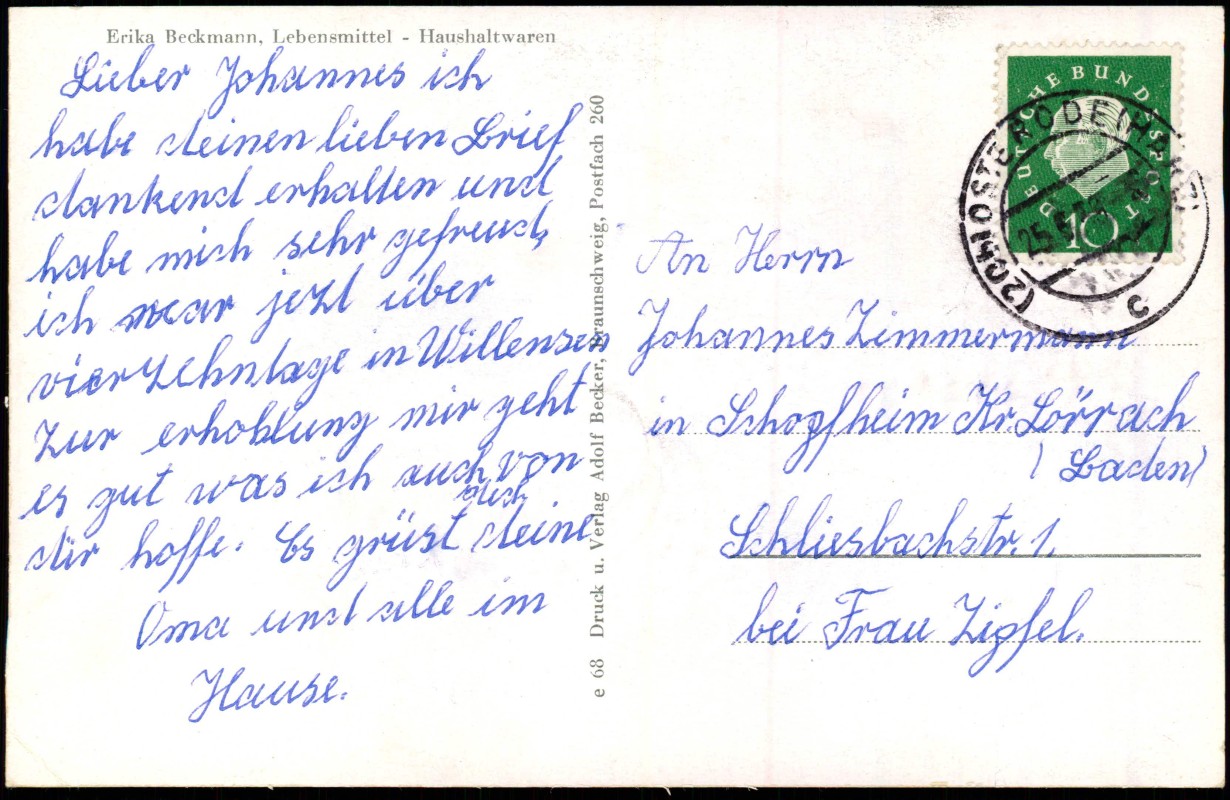 Erika Beckmann, Lebensmittel - Haushaltwaren
Lieber Johannes ich
habe deinen lieben Brief
dankend erhalten und
habe mich sehr gefreud,
ich war jezt über
vierzehntage in Willensen
zur erhohlung mir geht
es gut was ich auch von
dir hoffe. Es grüst dich deine
Oma und alle im
Hause.
e 68 Druck u. Verlag Adolf Becker, Braunschweig, Postfach 260
DEUTSCHE BUNDESPOST
10
(20b) OSTERODE (HARZ)
25.
c
An Herrn
Johannes Zimmermann
in Schopfheim Kr. Lörrach
(Baden)
Schliesbachstr. 1.
bei Frau Zipfel.